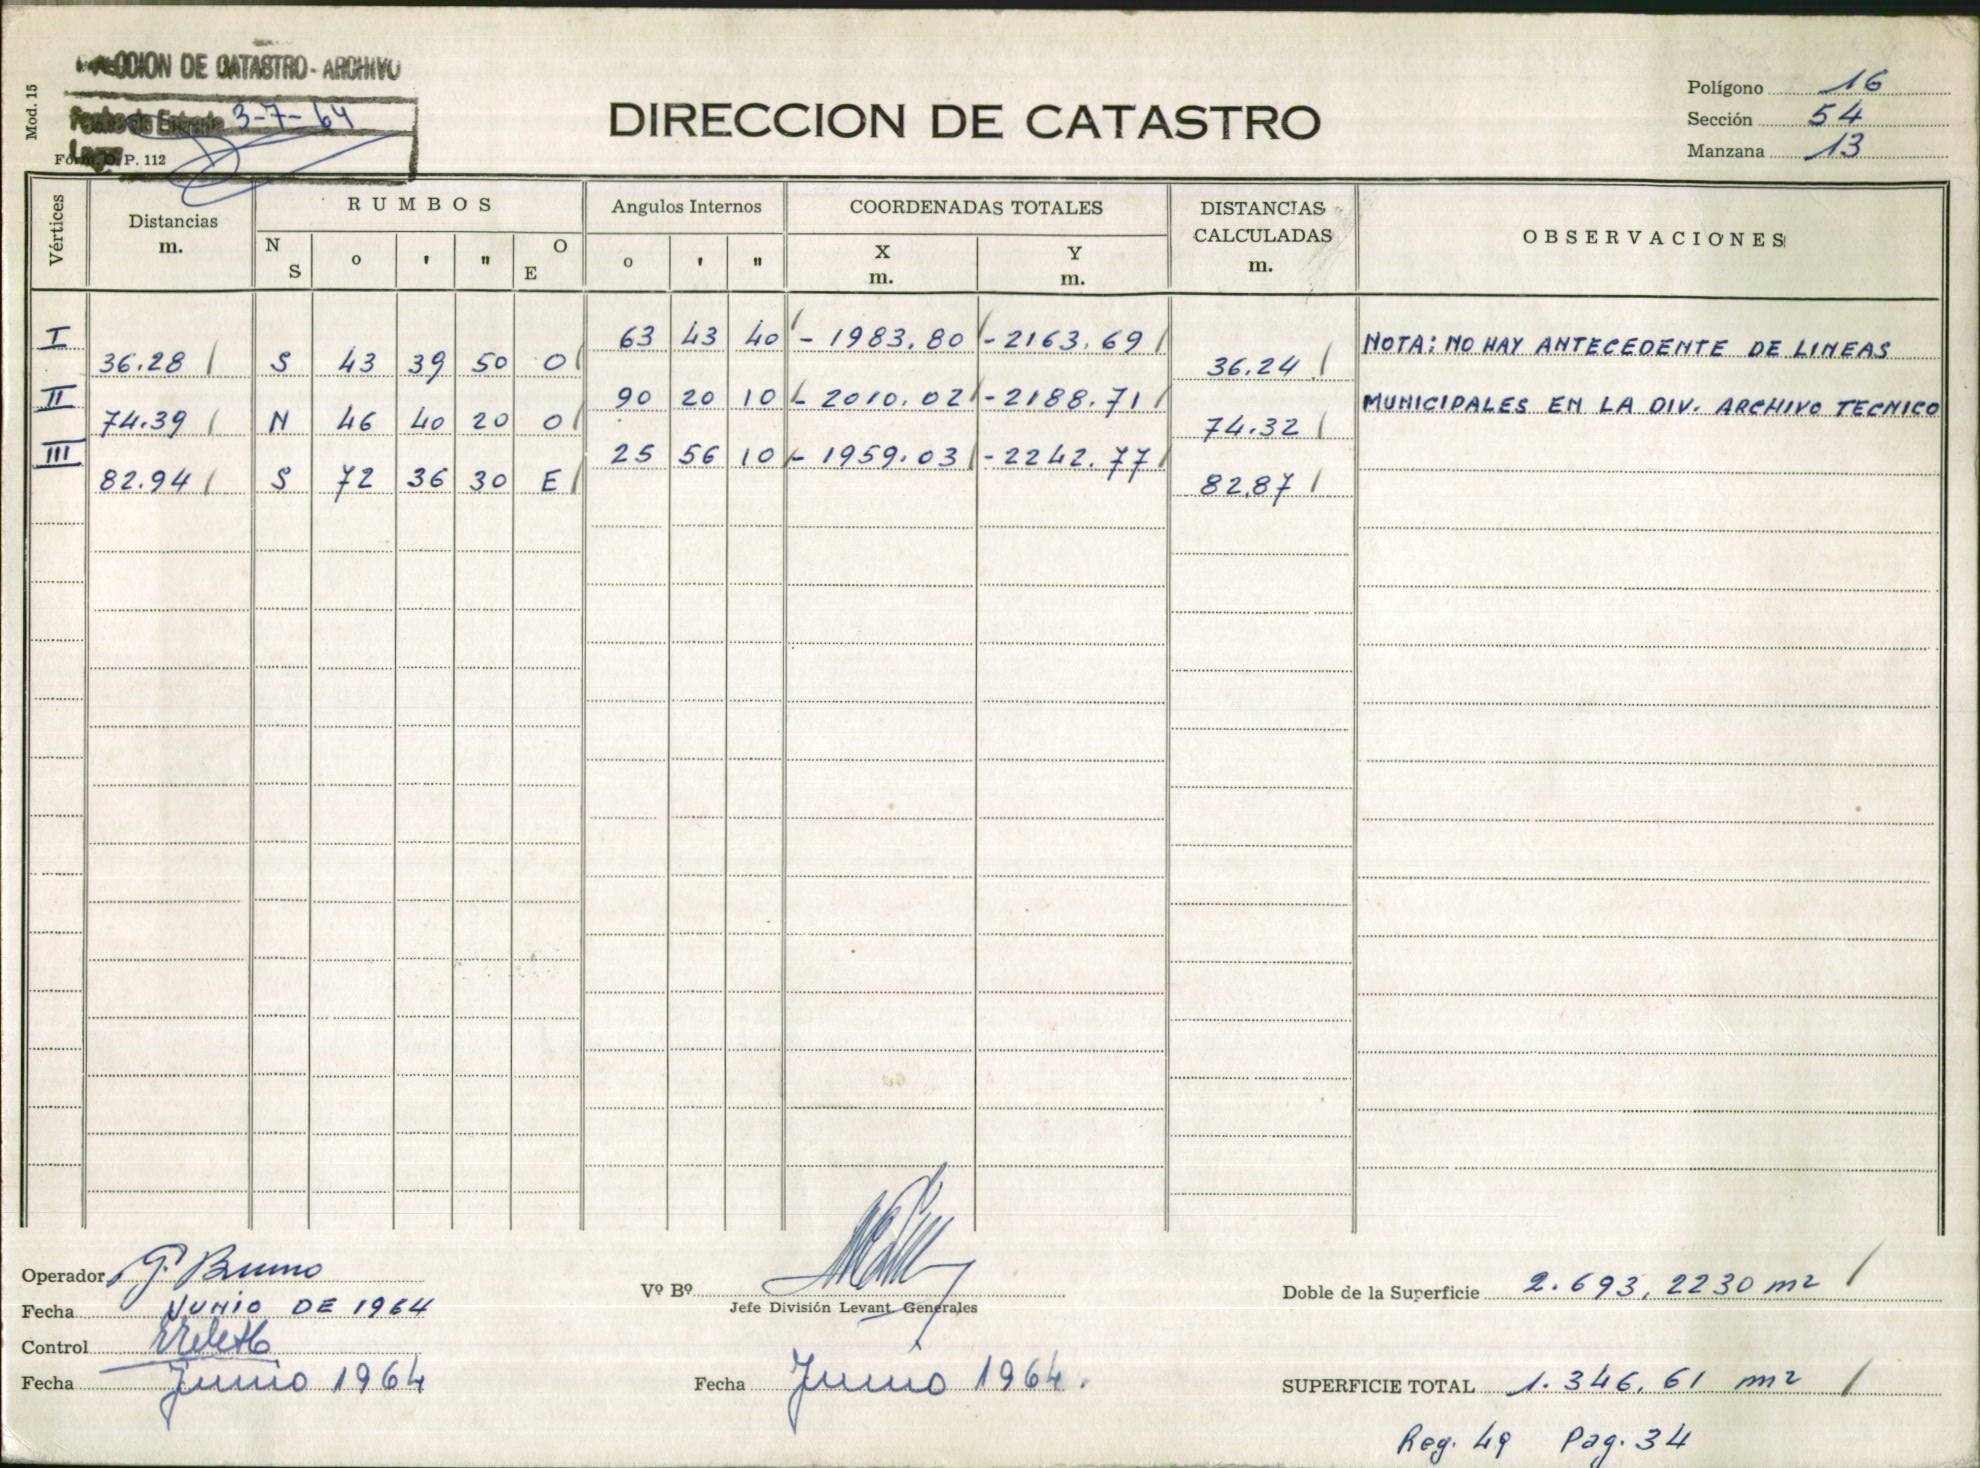 DE CATASTRO - ARCHIVO
3-7-64
Mod. 15
P. 112
DIRECCION DE CATASTRO
Polígono 16
Sección 54
Manzana 13
Vértices
Distancias m.
RUMBOS
N S ° ' " O E
Angulos Internos
° ' "
COORDENADAS TOTALES
X m. Y m.
DISTANCIAS CALCULADAS m.
OBSERVACIONES
I 63 43 40 - 1983.80 - 2163.69
36.28 S 43 39 50 O 36.24
NOTA: NO HAY ANTECEDENTE DE LINEAS
II 90 20 10 - 2010.02 - 2188.71
74.39 N 46 40 20 O 74.32
MUNICIPALES EN LA DIV. ARCHIVO TECNICO
III 25 56 10 - 1959.03 - 2242.77
82.94 S 72 36 30 E 82.87
Operador G. Bruno
Fecha JUNIO DE 1964
Control
Fecha Junio 1964
Vº Bº
Jefe División Levant Generales
Fecha Junio 1964.
Doble de la Superficie 2.693,2230 m2
SUPERFICIE TOTAL 1.346,61 m2
Reg. 49 Pag. 34